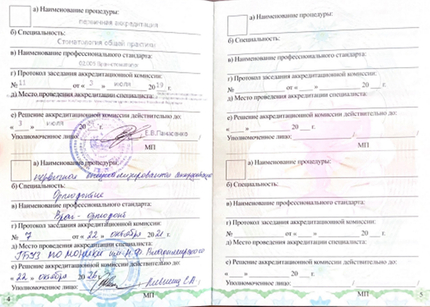 а) Наименование процедуры:
первичная аккредитация
б) Специальность:
Стоматология общей практики
в) Наименование профессионального стандарта:
г) Протокол заседания аккредитационной комиссии:
№ 11 от « 3 » июля 20 19 г.
д) Место проведения аккредитации специалиста:
е) Решение аккредитационной комиссии действительно до:
« 3 » июля 20 г.
Уполномоченное лицо: Е.В.
МП
а) Наименование процедуры:
первичная специализированная аккредитация
б) Специальность:
Ортодонтия
в) Наименование профессионального стандарта:
Врач-
г) Протокол заседания аккредитационной комиссии:
№ 7 от « 22 » октября 20 21 г.
д) Место проведения аккредитации специалиста:
ГБУЗ МО МОНИКИ им. М.Ф. Владимирского
е) Решение аккредитационной комиссии действительно до:
« 22 » октября 20 26 г.
Уполномоченное лицо:
МП
4
а) Наименование процедуры:
б) Специальность:
в) Наименование профессионального стандарта:
г) Протокол заседания аккредитационной комиссии:
№ от « » 20 г.
д) Место проведения аккредитации специалиста:
е) Решение аккредитационной комиссии действительно до:
« » 20 г.
Уполномоченное лицо: / /
МП
а) Наименование процедуры:
б) Специальность:
в) Наименование профессионального стандарта:
г) Протокол заседания аккредитационной комиссии:
№ от « » 20 г.
д) Место проведения аккредитации специалиста:
е) Решение аккредитационной комиссии действительно до:
« » 20 г.
Уполномоченное лицо: / /
МП
5